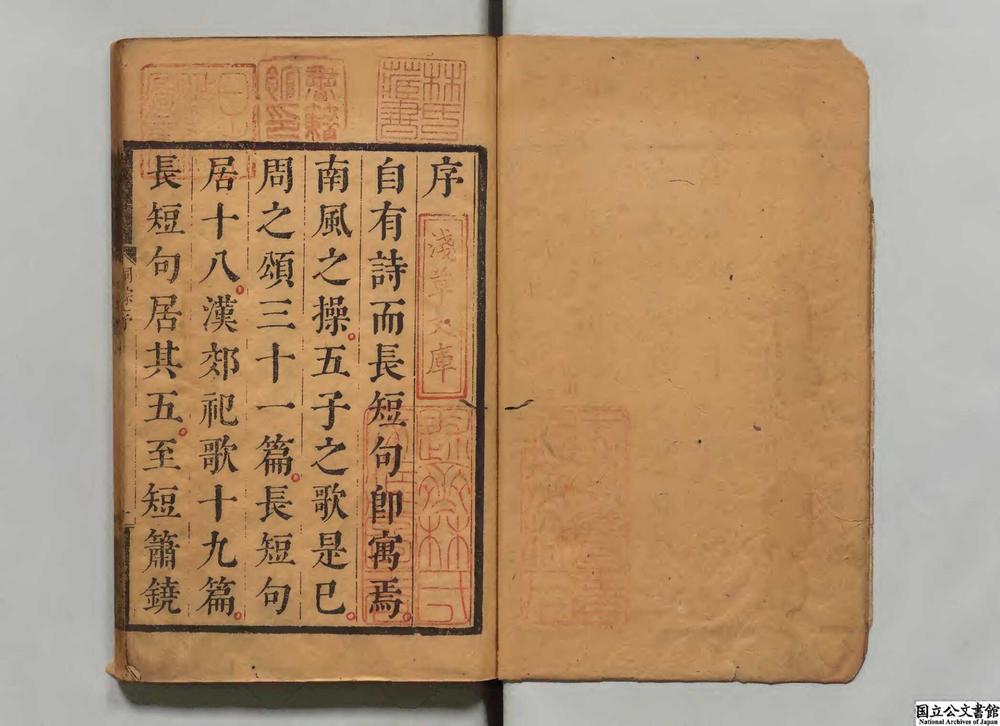 序
自有詩而長短句卽寓焉
南風之操五子之歌是已
周之頌三十一篇長短句
居十八漢郊祀歌十九篇
長短句居其五至短簫鐃
淺草文庫
林氏藏書
国立公文書館
National Archives of Japan